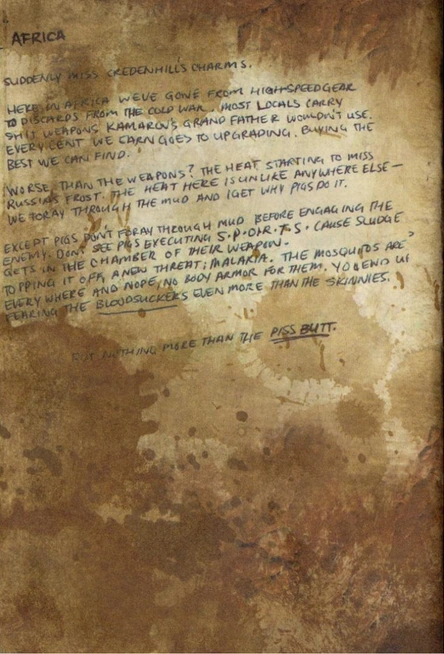 AFRICA
SUDDENLY MISS CREDENHILL'S CHARMS.
HERE IN AFRICA WE'VE GONE FROM HIGH-SPEED GEAR
TO DISCARDS FROM THE COLD WAR. MOST LOCALS CARRY
SHIT WEAPONS KAMAROV'S GRAND FATHER WOULDN'T USE.
EVERY CENT WE EARN GOES TO UPGRADING. BUYING THE
BEST WE CAN FIND.
WORSE THAN THE WEAPONS? THE HEAT STARTING TO MISS
RUSSIAS FROST. THE HEAT HERE IS UNLIKE ANYWHERE ELSE—
WE FORAY THROUGH THE MUD AND I GET WHY PIGS DO IT.
EXCEPT PIGS DON'T FORAY THROUGH MUD BEFORE ENGAGING THE
ENEMY. DON'T SEE PIGS EXECUTING S.P.O.R.T.S. CAUSE SLUDGE
GETS IN THE CHAMBER OF THEIR WEAPON.
TOPPING IT OFF, A NEW THREAT; MALARIA. THE MOSQUITOS ARE
EVERYWHERE AND NOPE, NO BODY ARMOR FOR THEM. YOU END UP
FEARING THE BLOODSUCKERS EVEN MORE THAN THE SKINNIES.
BUT NOTHING MORE THAN THE PISS BUTT.